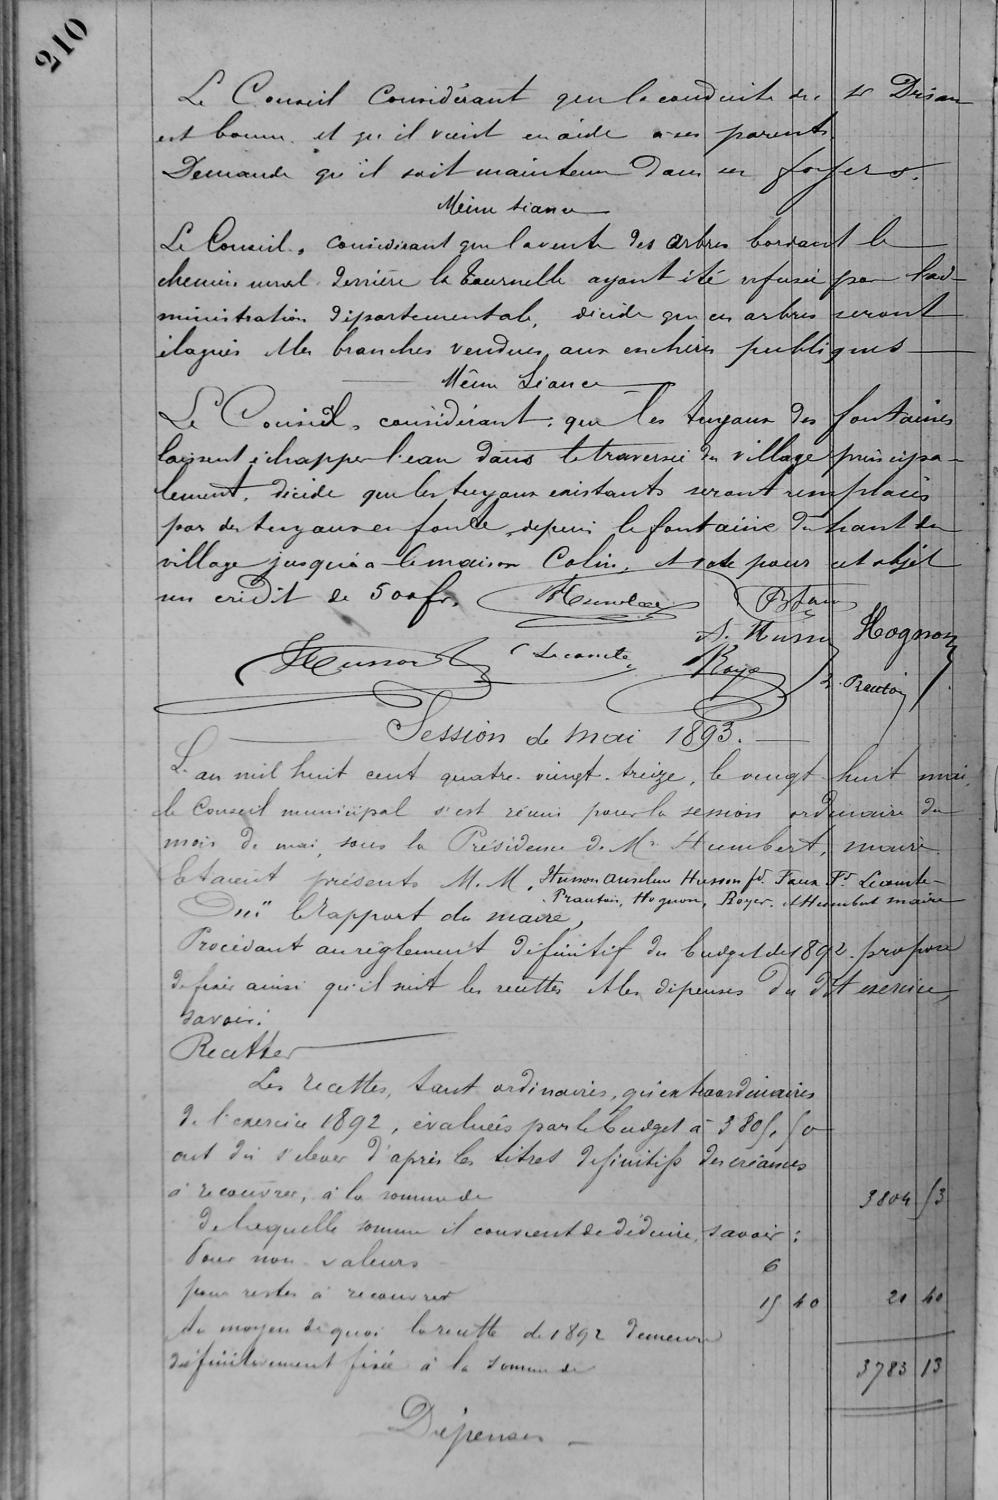 210
Le Conseil considérant que la conduite du sr Drisan
est bonne et qu'il vient en aide à ses parents
Demande qu'il soit maintenu dans ses foyers.
Même séance
Le Conseil, considérant que la vente des arbres bordant le
chemin rural derrière la Tournelle ayant été refusée par l'ad-
ministration départementale, décide que ces arbres seront
élagués et les branches vendues aux enchères publiques
Même Séance
Le Conseil, considérant que les tuyaux des fontaines
laissent échapper l'eau dans la traversée du village principa-
lement, décide que les tuyaux existants seront remplacés
par des tuyaux en fonte, depuis la fontaine du haut du
village jusqu'à la maison Colin, et vote pour cet objet
un crédit de 500 fr.
A. Husson Hognon
Husson Lecomte Royer Prautois
Session de Mai 1893.
L'an mil huit cent quatre-vingt-treize, le vingt huit mai,
le Conseil municipal s'est réuni pour la session ordinaire du
mois de mai, sous la Présidence de Mr Humbert, maire.
Etaient présents M.M. Husson Anselme Husson fd. Faux Fd. Lecomte
Prautois, Hognon, Royer. et Humbert maire
Ouï le Rapport du maire,
Procédant au règlement définitif du budget de 1892. propose
de fixer ainsi qu'il suit les recettes et les dépenses du dit exercice,
savoir:
Recettes
Les recettes, tant ordinaires, qu'extraordinaires
de l'exercice 1892, évaluées par le budget à 3805,50
ont dû s'élever d'après les titres définitifs des créances
à recouvrer, à la somme de 3804 53
de laquelle somme il convient de déduire, savoir:
Pour non-valeurs 6
pour restes à recouvrer 15 40 21 40
Au moyen de quoi la recette de 1892 demeure
définitivement fixée à la somme de 3783 13
Dépenses